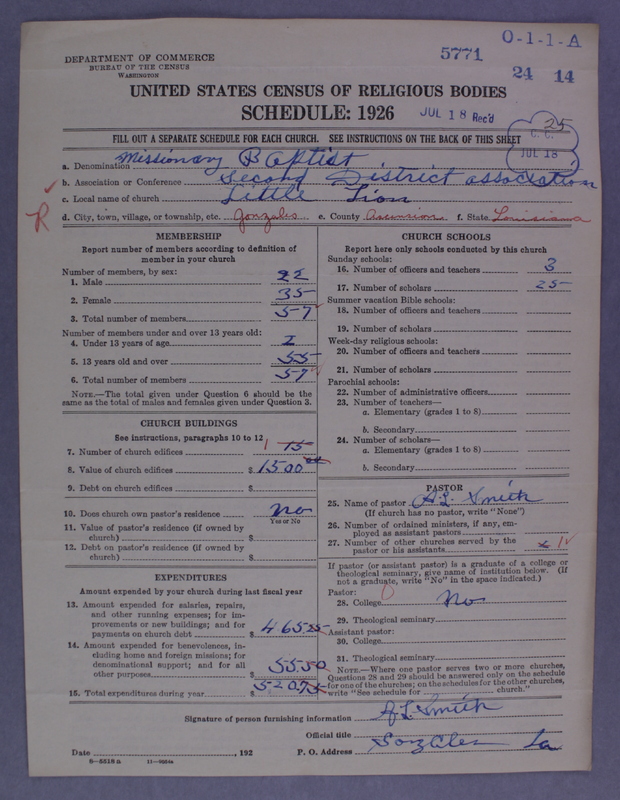 O-1-1-A
5771
24 14
DEPARTMENT OF COMMERCE
BUREAU OF THE CENSUS
WASHINGTON
UNITED STATES CENSUS OF RELIGIOUS BODIES
SCHEDULE: 1926
JUL 18 Rec'd
25
C. C.
JUL 18
FILL OUT A SEPARATE SCHEDULE FOR EACH CHURCH. SEE INSTRUCTIONS ON THE BACK OF THIS SHEET
a. Denomination Missionary Baptist
b. Association or Conference Second District association
c. Local name of church Little Zion
R
d. City, town, village, or township, etc. Gonzales e. County Ascension f. State Louisiana
MEMBERSHIP
Report number of members according to definition of
member in your church
Number of members, by sex:
1. Male 22
2. Female 35
3. Total number of members 57
Number of members under and over 13 years old:
4. Under 13 years of age 2
5. 13 years old and over 55
6. Total number of members 57
NOTE.—The total given under Question 6 should be the
same as the total of males and females given under Question 3.
CHURCH BUILDINGS
See instructions, paragraphs 10 to 12
7. Number of church edifices 1 15
8. Value of church edifices $ 1500 00
9. Debt on church edifices $
10. Does church own pastor's residence No
Yes or No
11. Value of pastor's residence (if owned by
church) $
12. Debt on pastor's residence (if owned by
church) $
EXPENDITURES
Amount expended by your church during last fiscal year
13. Amount expended for salaries, repairs,
and other running expenses; for im-
provements or new buildings; and for
payments on church debt $ 465.25
14. Amount expended for benevolences, in-
cluding home and foreign missions; for
denominational support; and for all
other purposes $ 55.50
15. Total expenditures during year $ 520.75
CHURCH SCHOOLS
Report here only schools conducted by this church
Sunday schools:
16. Number of officers and teachers 3
17. Number of scholars 25
Summer vacation Bible schools:
18. Number of officers and teachers
19. Number of scholars
Week-day religious schools:
20. Number of officers and teachers
21. Number of scholars
Parochial schools:
22. Number of administrative officers
23. Number of teachers—
a. Elementary (grades 1 to 8)
b. Secondary
24. Number of scholars—
a. Elementary (grades 1 to 8)
b. Secondary
PASTOR
25. Name of pastor A.L. Smith
(If church has no pastor, write "None")
26. Number of ordained ministers, if any, em-
ployed as assistant pastors
27. Number of other churches served by the
pastor or his assistants 1
If pastor (or assistant pastor) is a graduate of a college or
theological seminary, give name of institution below. (If
not a graduate, write "No" in the space indicated.)
Pastor: 0
28. College No
29. Theological seminary
Assistant pastor:
30. College
31. Theological seminary
NOTE.—Where one pastor serves two or more churches,
Questions 28 and 29 should be answered only on the schedule
for one of the churches; on the schedules for the other churches,
write "See schedule for church."
Signature of person furnishing information A L Smith
Official title
Date , 192 P. O. Address Gonzales La
8-5518a 11-9004a